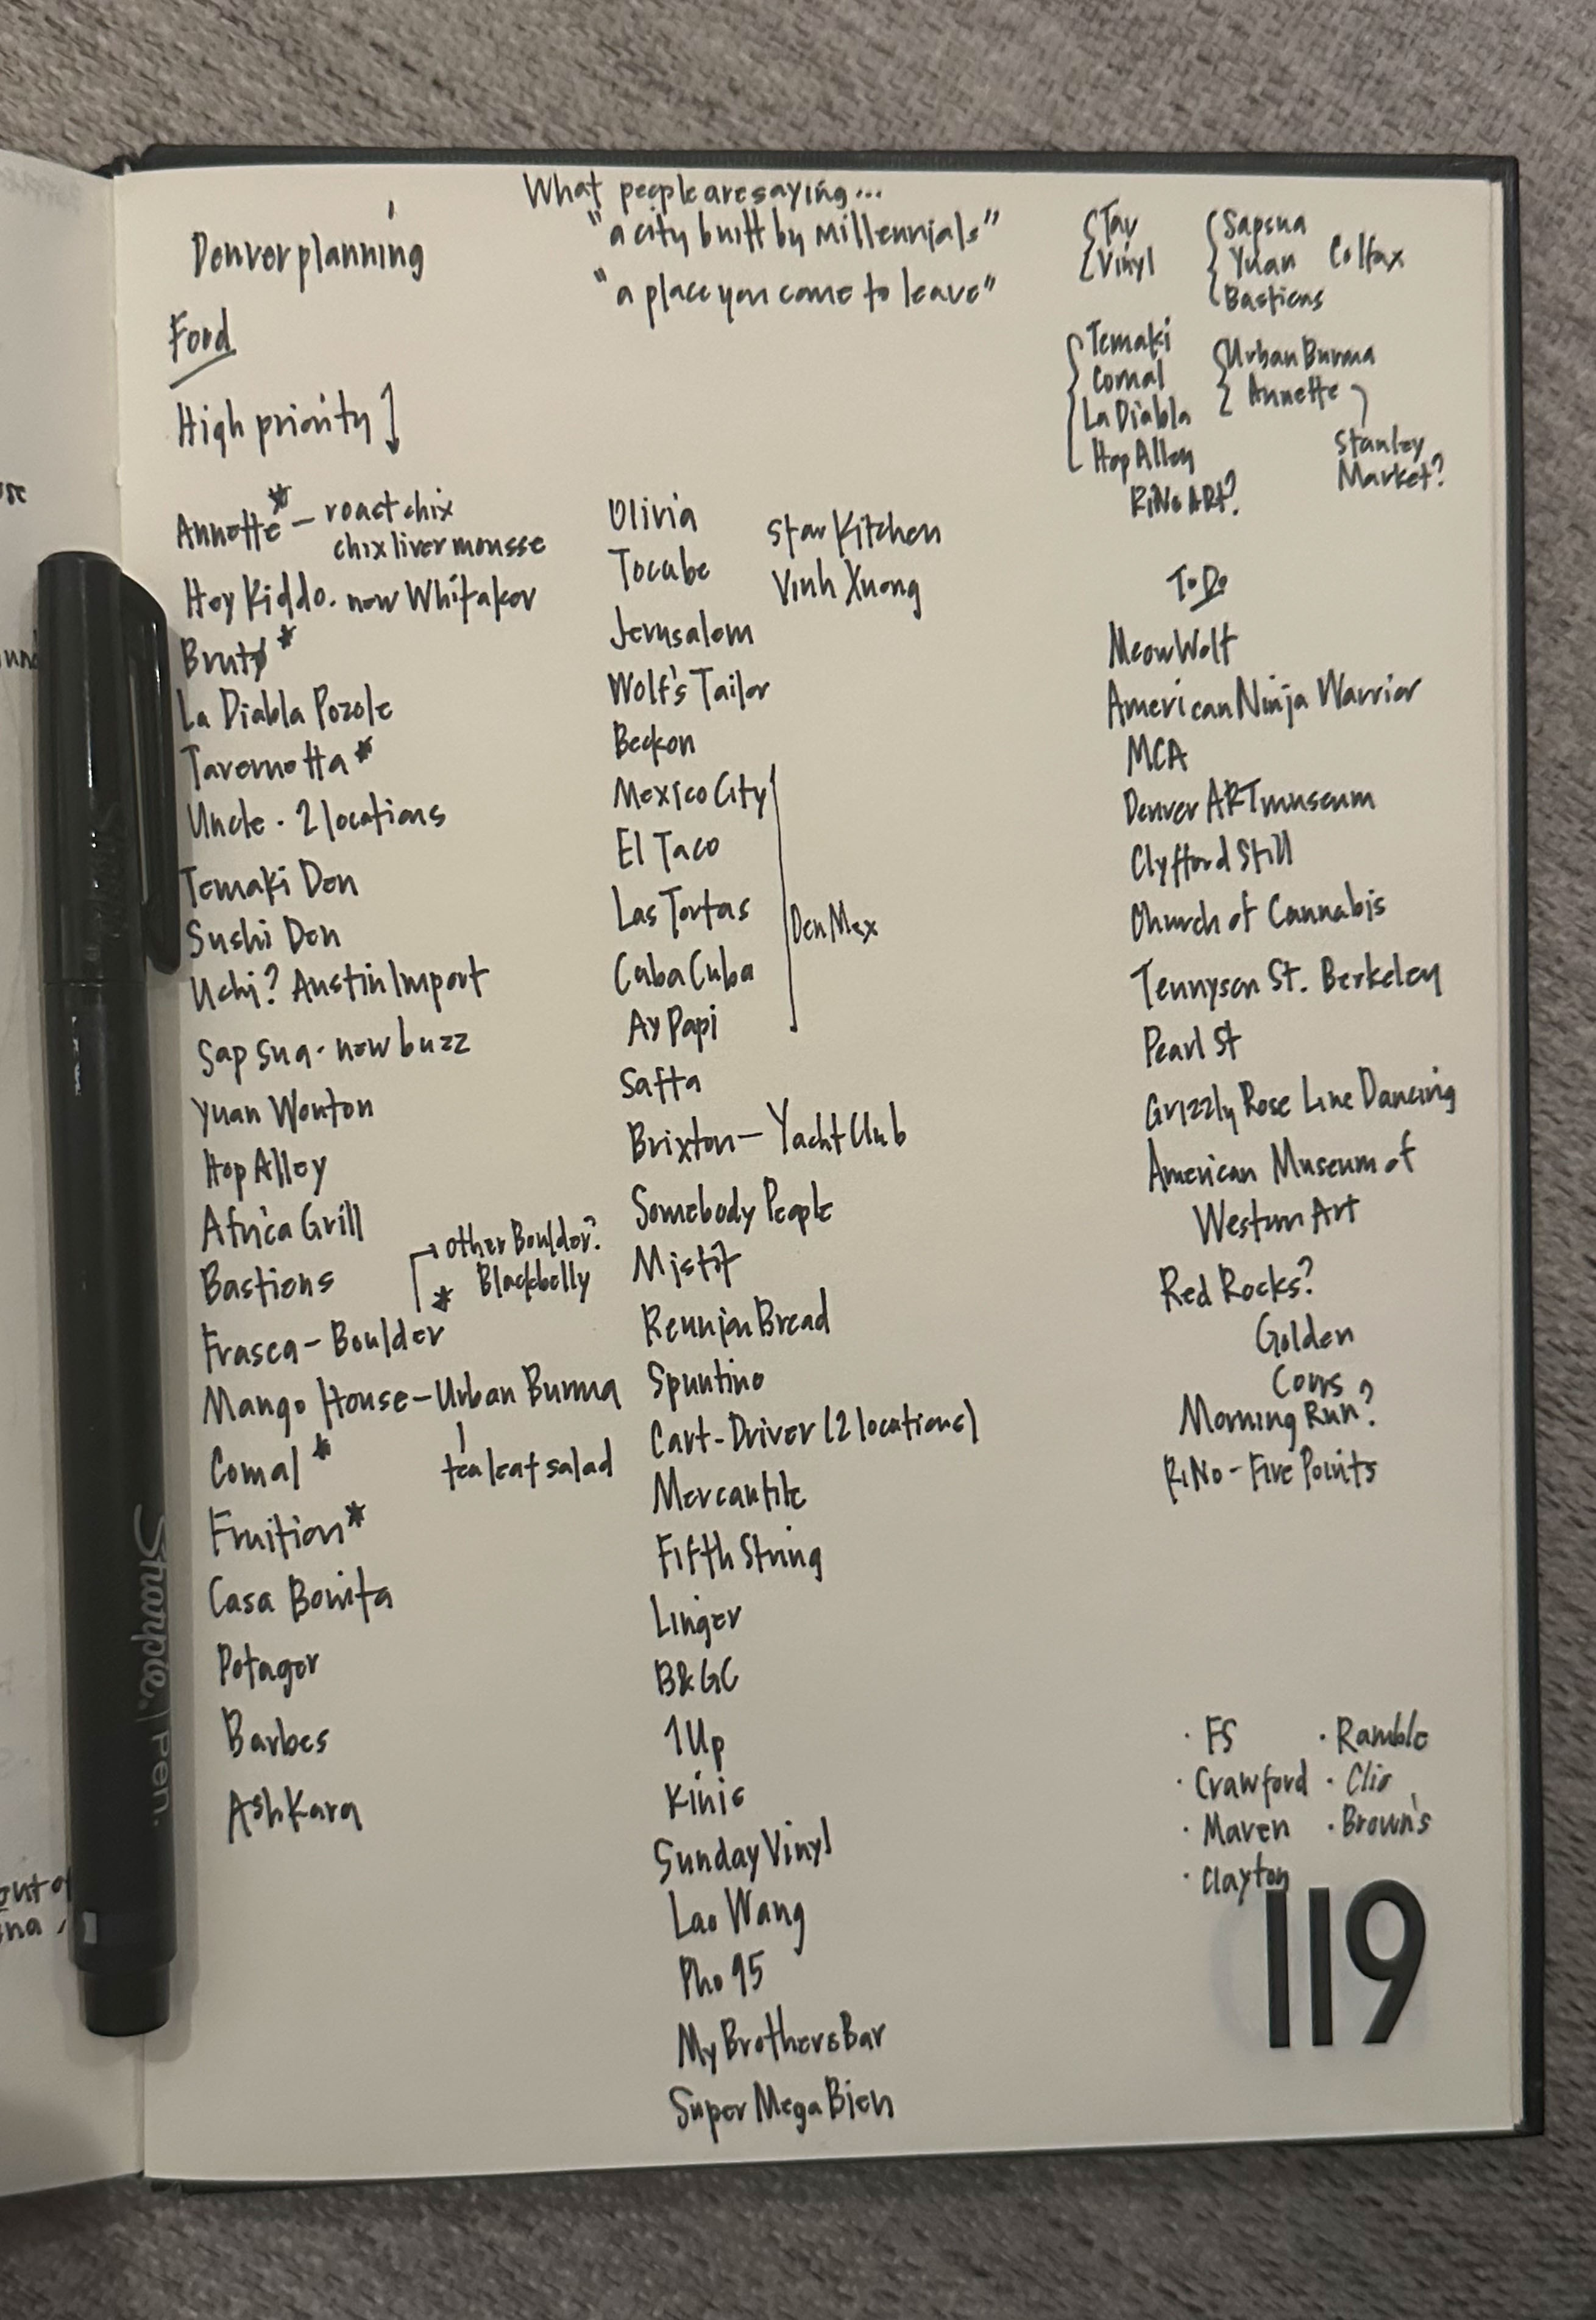 Denver planning
What people are saying...
"a city built by millennials"
"a place you come to leave"
Food
High priority
Annette* - roast chix
chix liver mousse
Hey Kiddo. now Whitaker
Brutø*
La Diabla Pozole
Tavernetta*
Uncle. 2 locations
Temaki Den
Sushi Den
Uchi? Austin Import
Sap Sua. new buzz
Yuan Wonton
Hop Alley
Africa Grill
Bastiens
other Boulder?
* Blackbelly
Frasca - Boulder
Mango House - Urban Burma
tea leaf salad
Comal*
Fruition*
Casa Bonita
Potager
Barbes
AshKara
Olivia
Tocabe
Star Kitchen
Vinh Xuong
Jerusalem
Wolf's Tailor
Beckon
Mexico City
El Taco
Las Tortas
Cuba Cuba
Ay Papi
Den Mex
Safta
Brixton - Yacht Club
Somebody People
Misfit
Reunion Bread
Spuntino
Cart-Driver (2 locations)
Mercantile
Fifth String
Linger
B&GC
1Up
Kinis
Sunday Vinyl
Lao Wang
Pho 95
My Brothers Bar
Super Mega Bien
Tav
Vinyl
Sapsua
Yuan
Bastiens
Colfax
Temaki
Comal
La Diabla
Hop Alley
RiNo ART?
Urban Burma
Annette
Stanley
Market?
To Do
Meow Wolf
American Ninja Warrior
MCA
Denver ART museum
Clyfford Still
Church of Cannabis
Tennyson St. Berkeley
Pearl St
Grizzly Rose Line Dancing
American Museum of
Western Art
Red Rocks?
Golden
Coors
Morning Run?
RiNo - Five Points
· FS
· Crawford
· Maven
· Clayton
· Ramble
· Clio
· Brown's
119
Sharpie. | Pen.